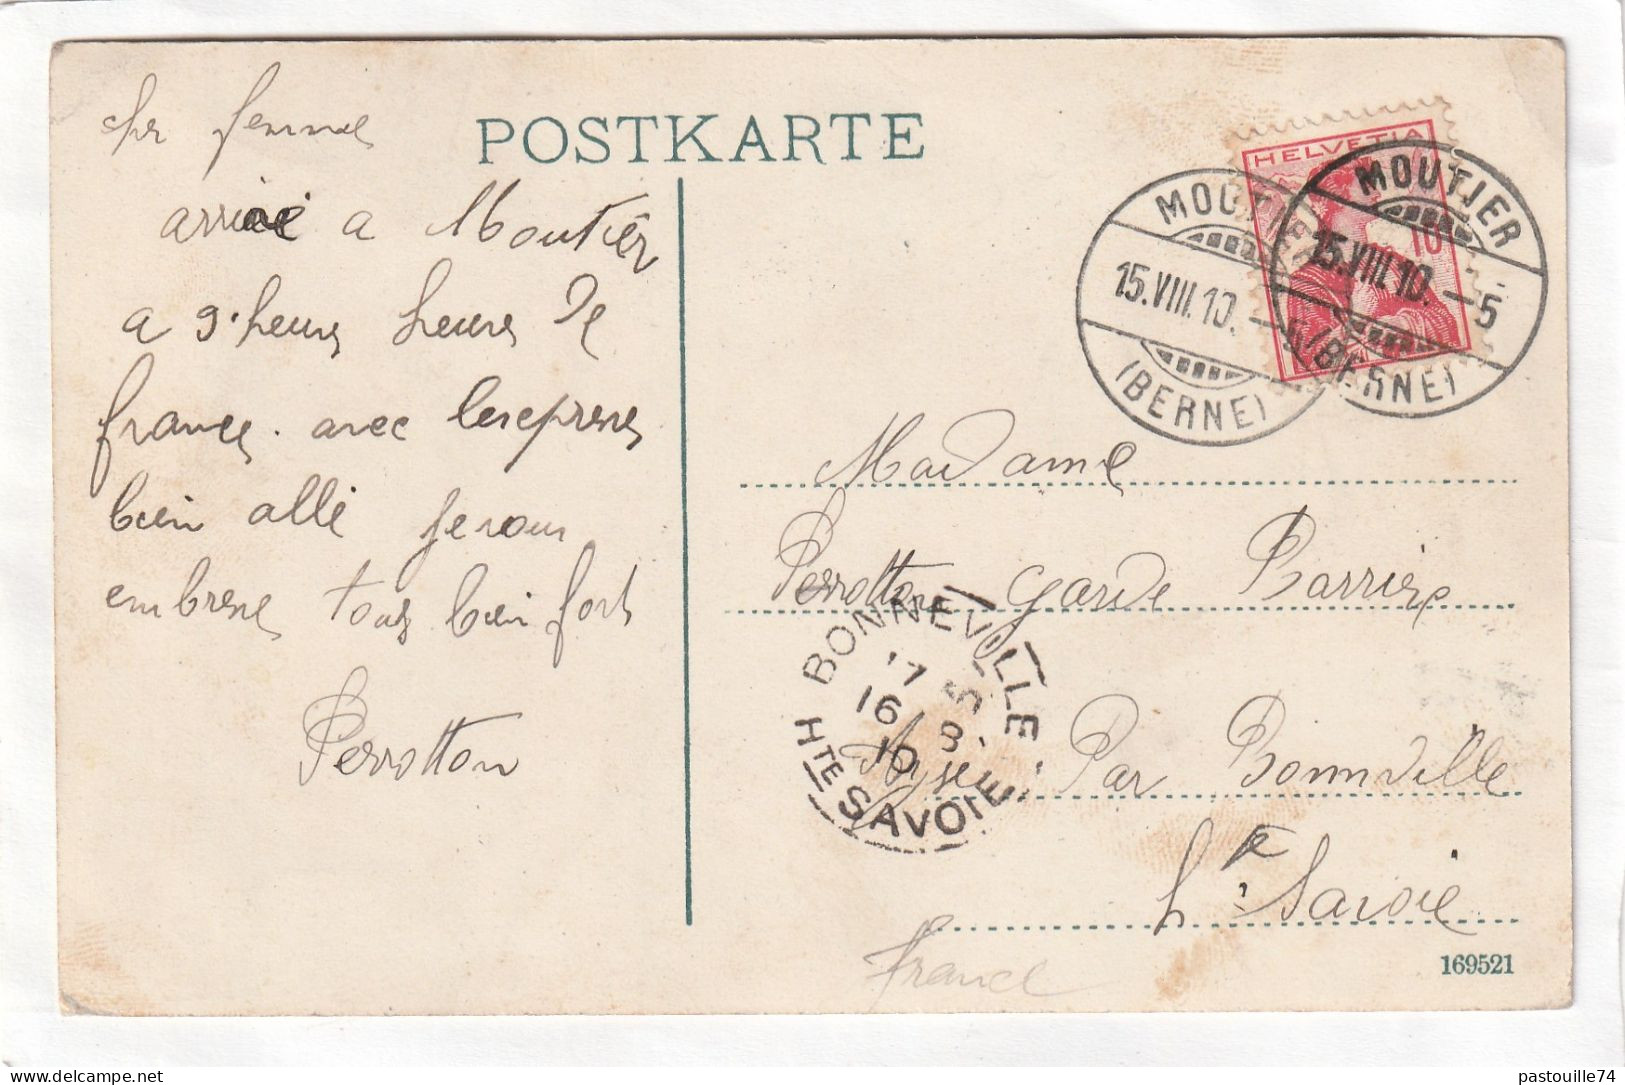 POSTKARTE
cher femme
arrivé a Moutier
a 9. heure heure de
france. avec
bien allé je vous
embrene tous bien fort
Perrotton
HELVETIA
10
MOUTIER
15.VIII.10.-5
(BERNE)
MOUTIER
15.VIII.10.-5
(BERNE)
Madame
Perrotton garde Barrière
Ayse Par Bonnville
hte Savoie
France
BONNEVILLE
17 5
16 / 8
10
HTE SAVOIE
169521
pastouille74